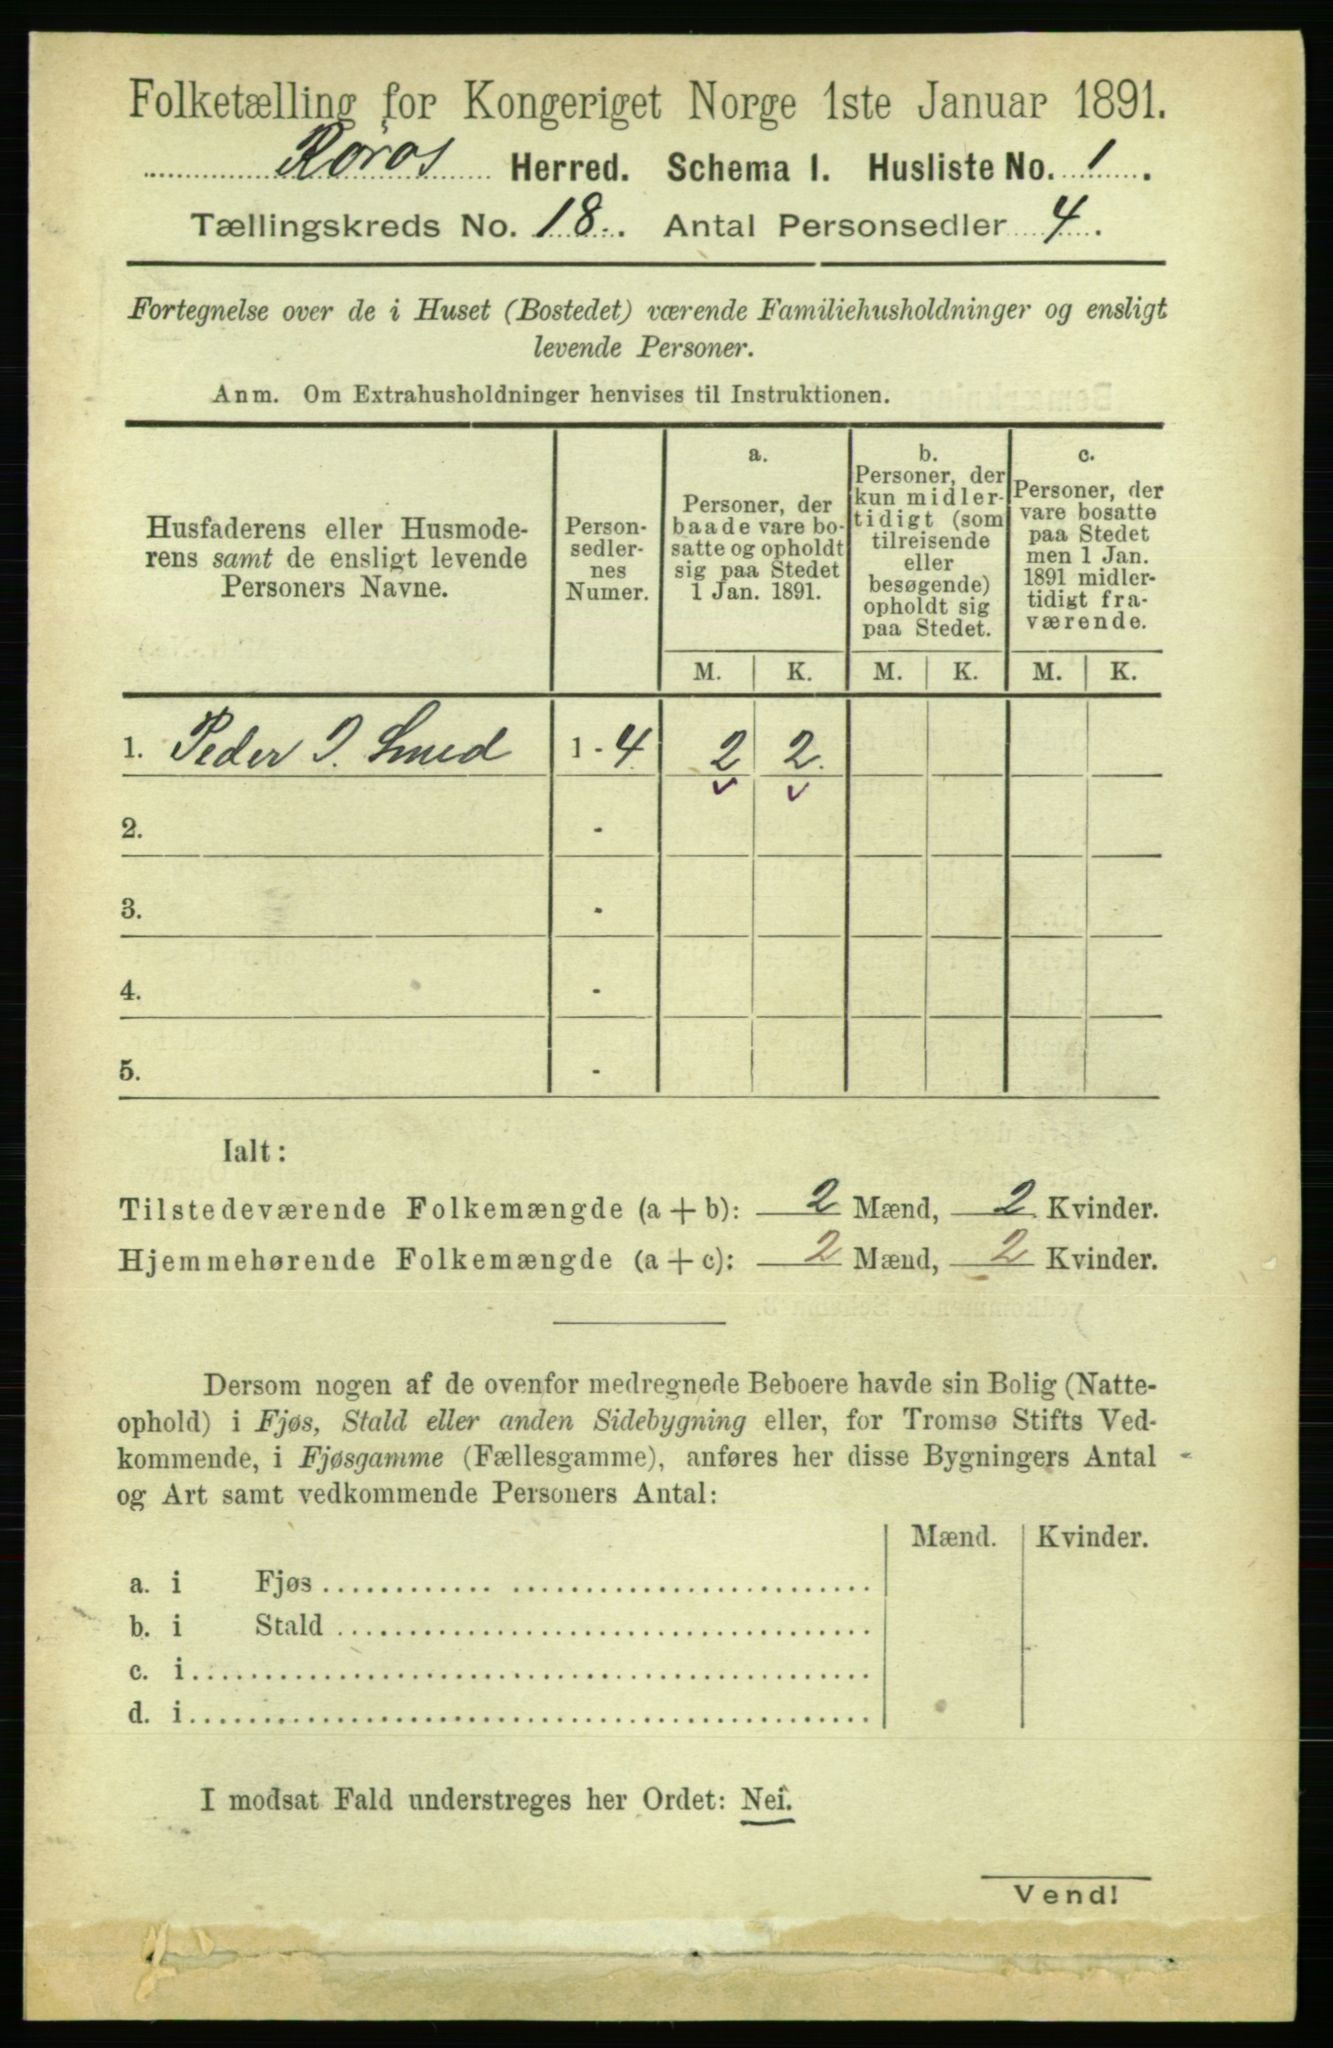 Folketælling for Kongeriget Norge 1ste Januar 1891.
Røros Herred. Schema I. Husliste No. 1.
Tællingskreds No. 18. Antal Personsedler 4.
Fortegnelse over de i Huset (Bostedet) værende Familiehusholdninger og ensligt
levende Personer.
Anm. Om Extrahusholdninger henvises til Instruktionen.
Husfaderens eller Husmode-
rens samt de ensligt levende
Personers Navne.
Person-
sedler-
nes
Numer.
a.
Personer, der
baade vare bo-
satte og opholdt
sig paa Stedet
1 Jan. 1891.
b.
Personer, der
kun midler-
tidigt (som
tilreisende
eller
besøgende)
opholdt sig
paa Stedet.
c.
Personer, der
vare bosatte
paa Stedet
men 1 Jan.
1891 midler-
tidigt fra-
værende.
M. K. M. K. M. K.
1. Peder J. Smed 1 - 4 2 2.
2. -
3. -
4. -
5. -
Ialt:
Tilstedeværende Folkemængde (a + b): 2 Mænd, 2 Kvinder.
Hjemmehørende Folkemængde (a + c): 2 Mænd, 2 Kvinder.
Dersom nogen af de ovenfor medregnede Beboere havde sin Bolig (Natte-
ophold) i Fjøs, Stald eller anden Sidebygning eller, for Tromsø Stifts Ved-
kommende, i Fjøsgamme (Fællesgamme), anføres her disse Bygningers Antal
og Art samt vedkommende Personers Antal:
Mænd. Kvinder.
a. i Fjøs
b. i Stald
c. i
d. i
I modsat Fald understreges her Ordet: Nei.
Vend!